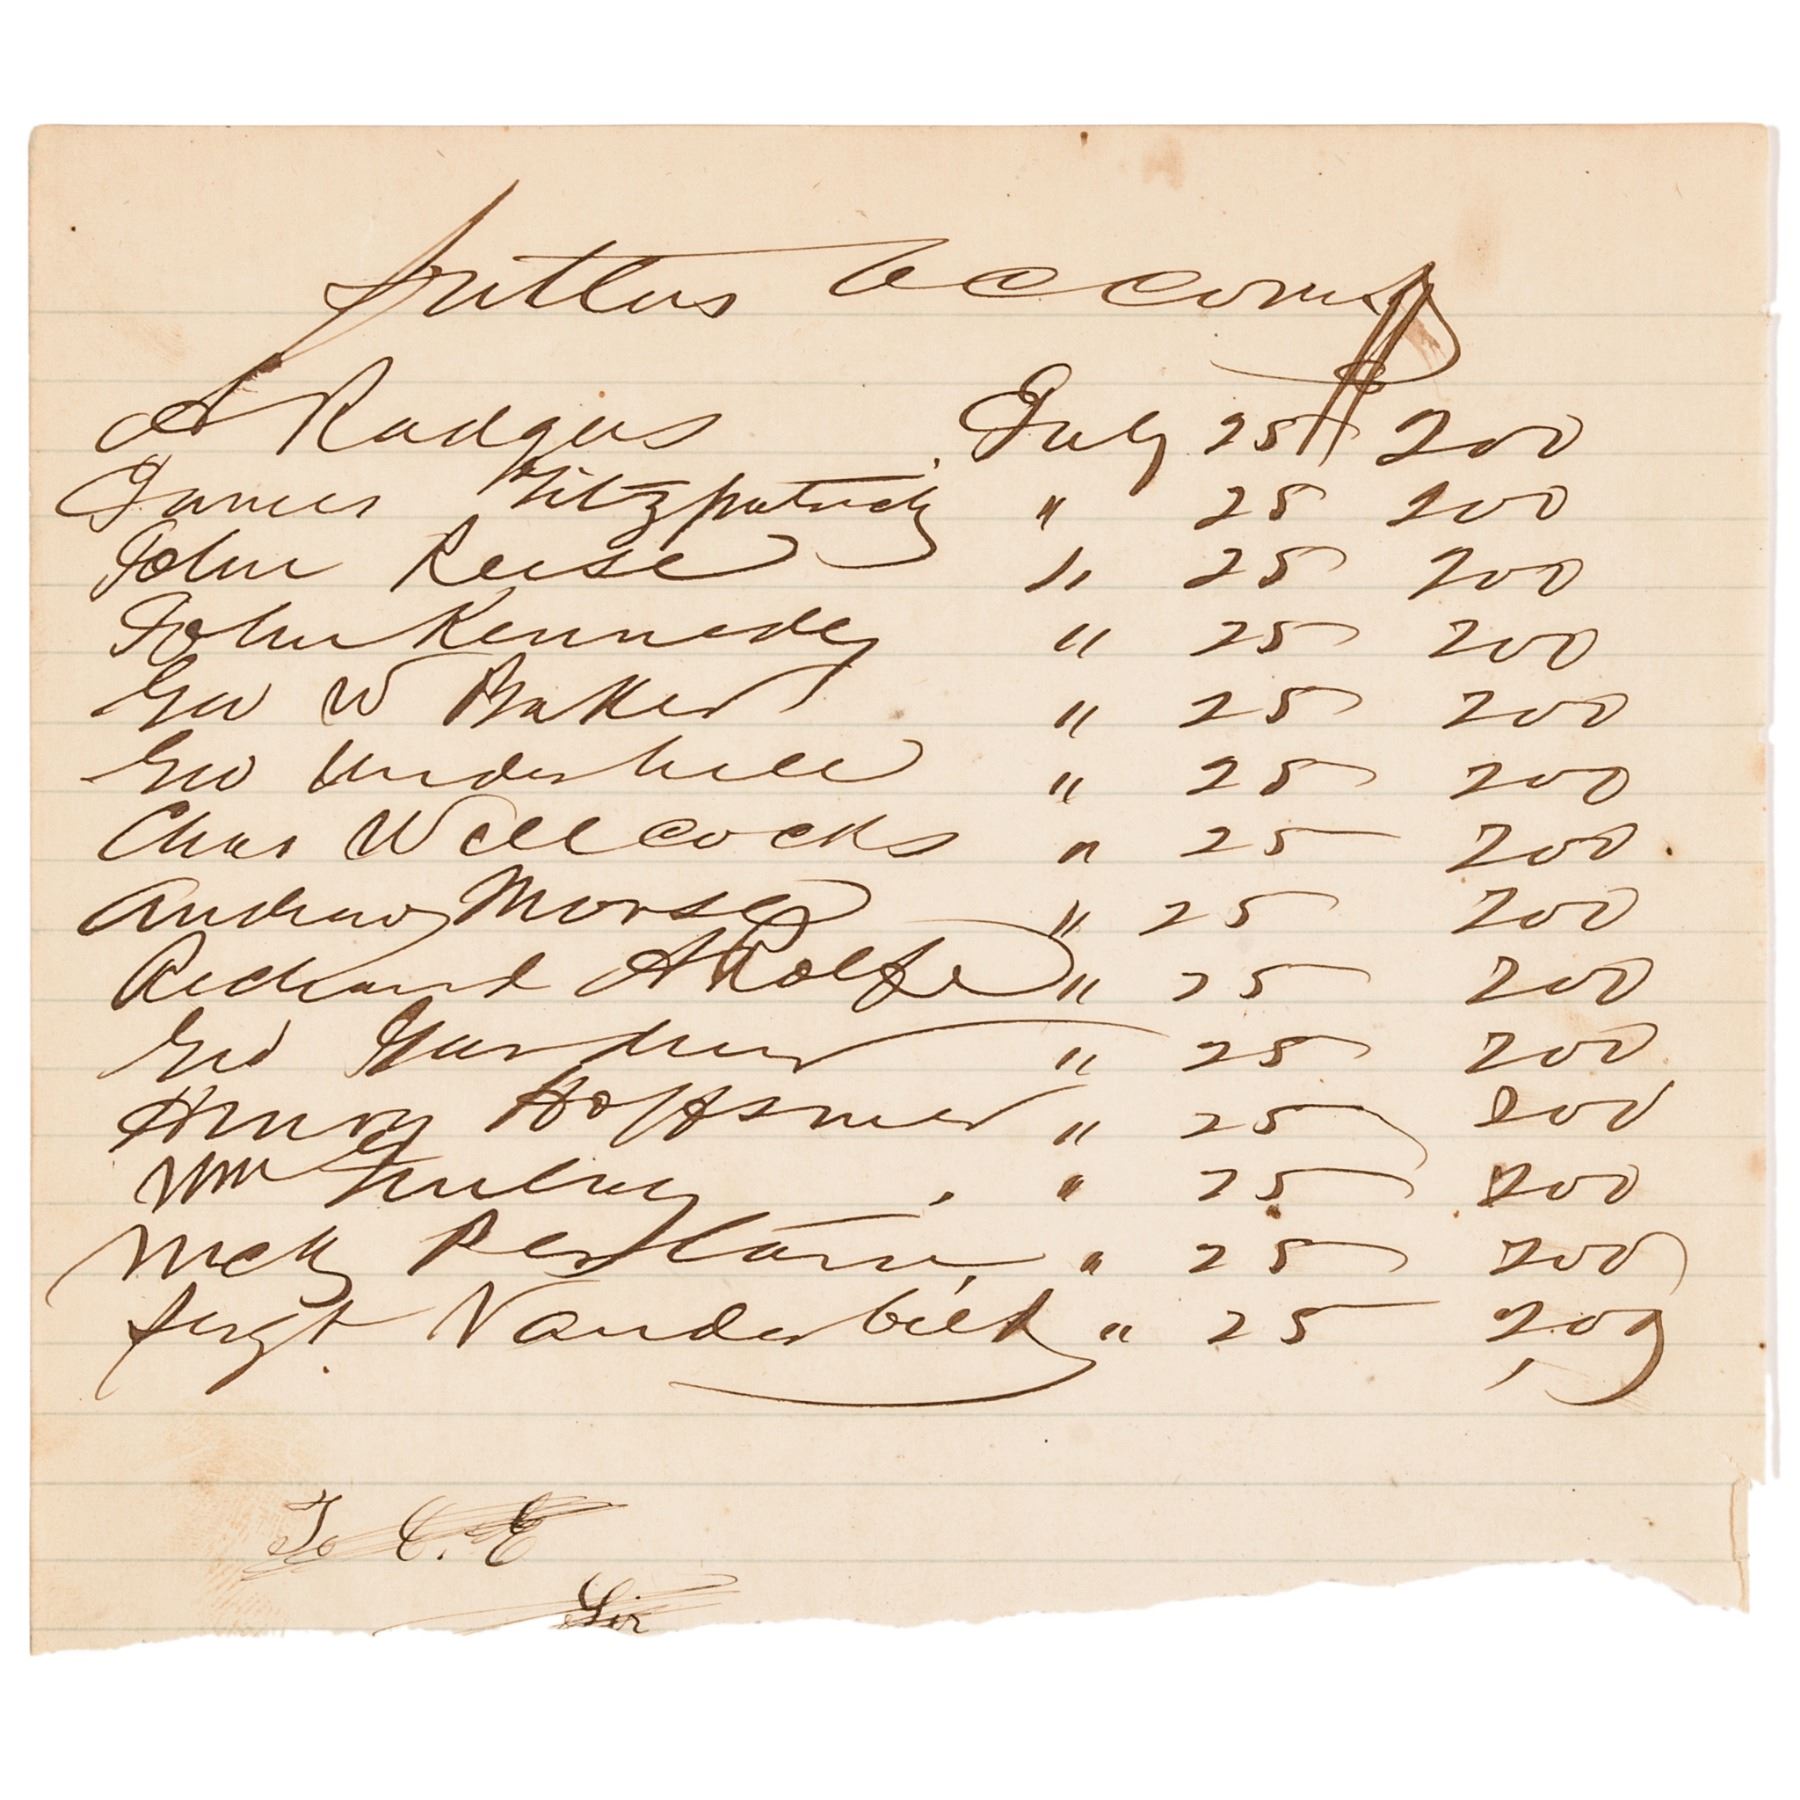 Sutlers Account
A Rodgers July 25 200
James Fitzpatrick " 25 200
John Reese " 25 200
John Kennedy " 25 200
Geo W Baker " 25 200
Geo Underhill " 25 200
Chas Willcocks " 25 200
Andrew Morse " 25 200
Richard A Rolfe " 25 200
Geo Gardner " 25 200
Henry " 25 200
Wm " 25 200
" 25 200
Sergt Vanderbilt " 25 200
To C. E
Sir